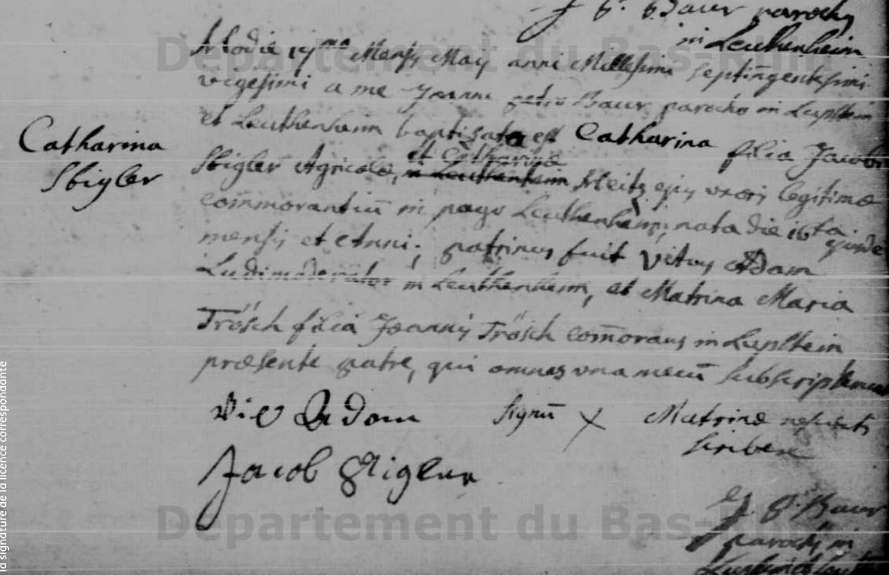 J. P. Baur parochy
in Leuthenheim
Hodie 17ma Mensis May anni Millesimi septingentesimi
vigesimi a me Joanne petro Baur parocho in Lupstein
et Leuthenheim baptisata est Catharina filia Jacobi
Catharina
Stigler
Stigler Agricolæ, et Catharina Meitz ejus uxoris legitimæ
commorantiū in pago Leuthenheim, nata die 16ta ejusde
mensis et Anni; patrinus fuit Vitus Adam
Ludimoderator in Leuthenheim, et Matrina Maria
Trösch filia Joannis Trösch com̄orans in Lupstein
præsente patre, qui omnes una mecū subscripserunt
Vit Adam Signū X Matrinæ nescientis
scribere
Jacob Stigler
J. P. Baur
parochy in
Département du Bas-Rhin
Département du Bas-Rhin
la signature de la licence correspondante